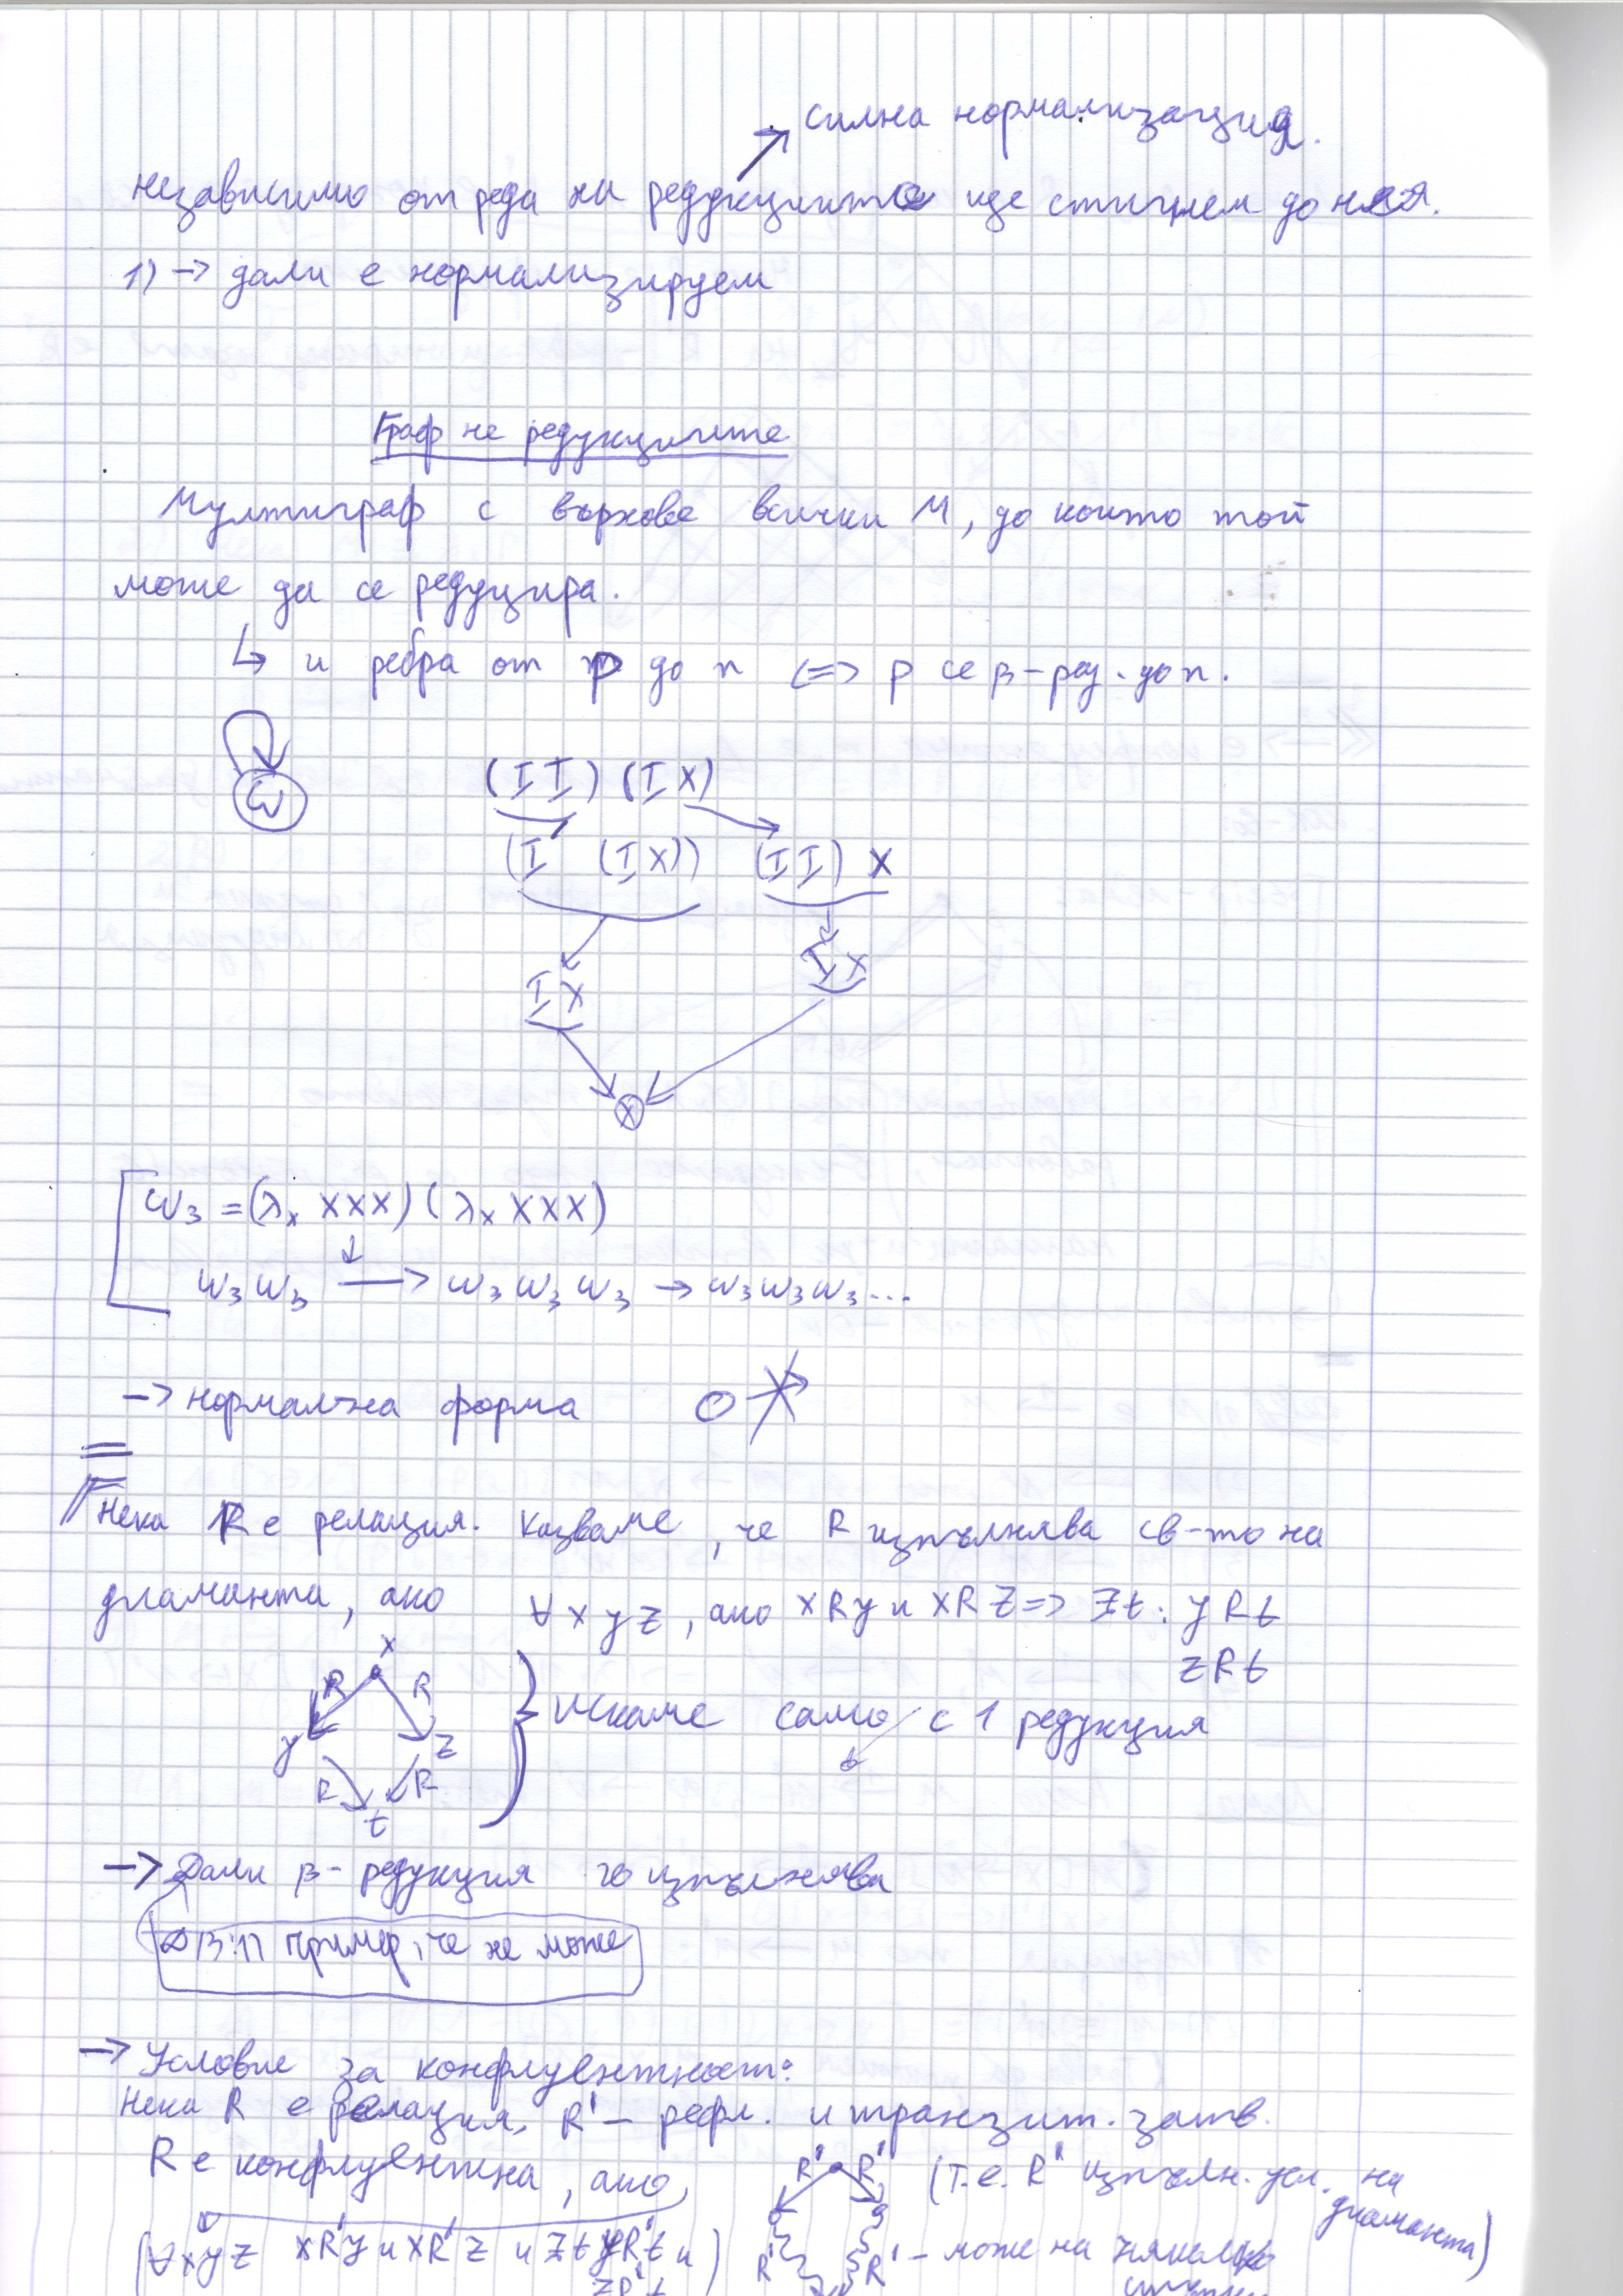 силна нормализация.
независимо от реда на редукциите ще стигнем до нея.
1) → дали е нормализируем
Граф не редукциите
Мултиграф с върхове всички M, до които той
може да се редуцира.
↳ и ребра от p до n <=> p се β-ред. до n.
ω
(I I) (I x)
(I (I x)) (I I) x
I x
I x
x
ω₃ = (λₓ xxx) (λₓ xxx)
ω₃ ω₃ → ω₃ ω₃ ω₃ → ω₃ω₃ω₃...
→ нормална форма
Нека R е релация. Казваме, че R изпълнява св-то на
диаманта, ако ∀ x y z, ако xRy и xRz => ∃t: yRt
zRt
x
R R
y z
R R
t
} Искаме само с 1 редукция
→ Дали β-редукция го изпълнява
ДВ:1) пример, че не може
→ Условие за конфлуентност:
Нека R е релация, R' – рефл. и транзит. затв.
R е конфлуентна, ако
R' R' (Т.е. R' изпълн. усл. на
диаманта)
(∀xyz xR'y и xR'z и ∃t yR't и
zR't )
R' R' – може на няколко
стъпки